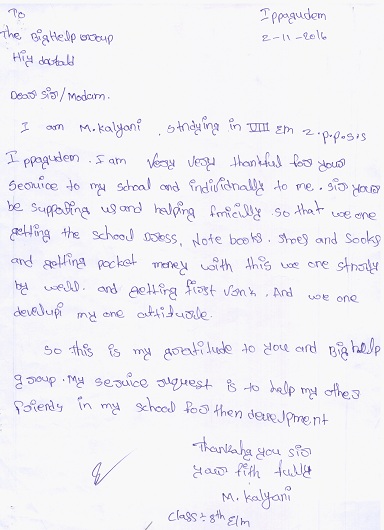 To
Ippagudem
The BigHelp group
2-11-2016
Hiy darabad
Dear sir/Madam.
I am M.kalyani, studying in VIII Em Z.p.p.s.s
Ippagudem. I am very very thankful for your
service to my school and individually to me. sir your
be supporting us and helping so that we are
getting the school dress, Note books. shoes and socks
and getting pocket money with this we are study
by well. and getting first rank. And we are
develupi my one attitude.
so this is my gratitude to you and Bighelp
group. My service request is to help my other
friends in my school for then development
Thankahg you sir
your fith fully
M. kalyani
class:- 8th E/m